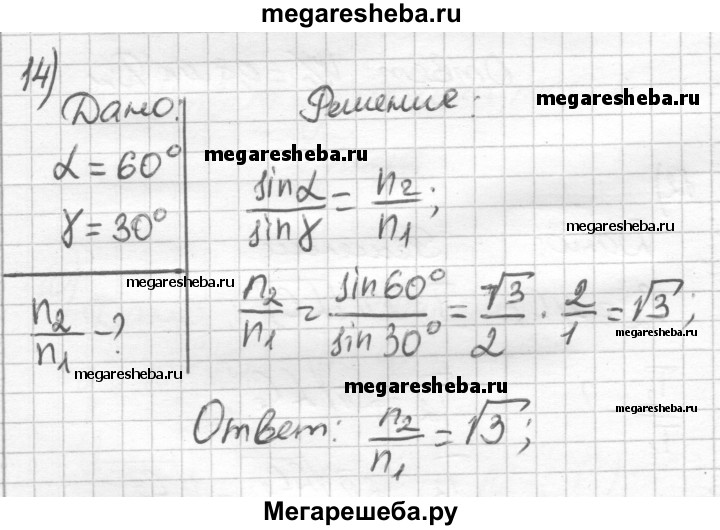 megaresheba.ru
14)
Дано:
Решение:
megaresheba.ru
α = 60°
megaresheba.ru
sinα/sinγ = n2/n1;
γ = 30°
megaresheba.ru
megaresheba.ru
n2/n1 - ?
n2/n1 = sin60°/sin30° = √3/2 · 2/1 = √3;
megaresheba.ru
megaresheba.ru
megaresheba.ru
megaresheba.ru
Ответ: n2/n1 = √3;
Мегарешеба.ру